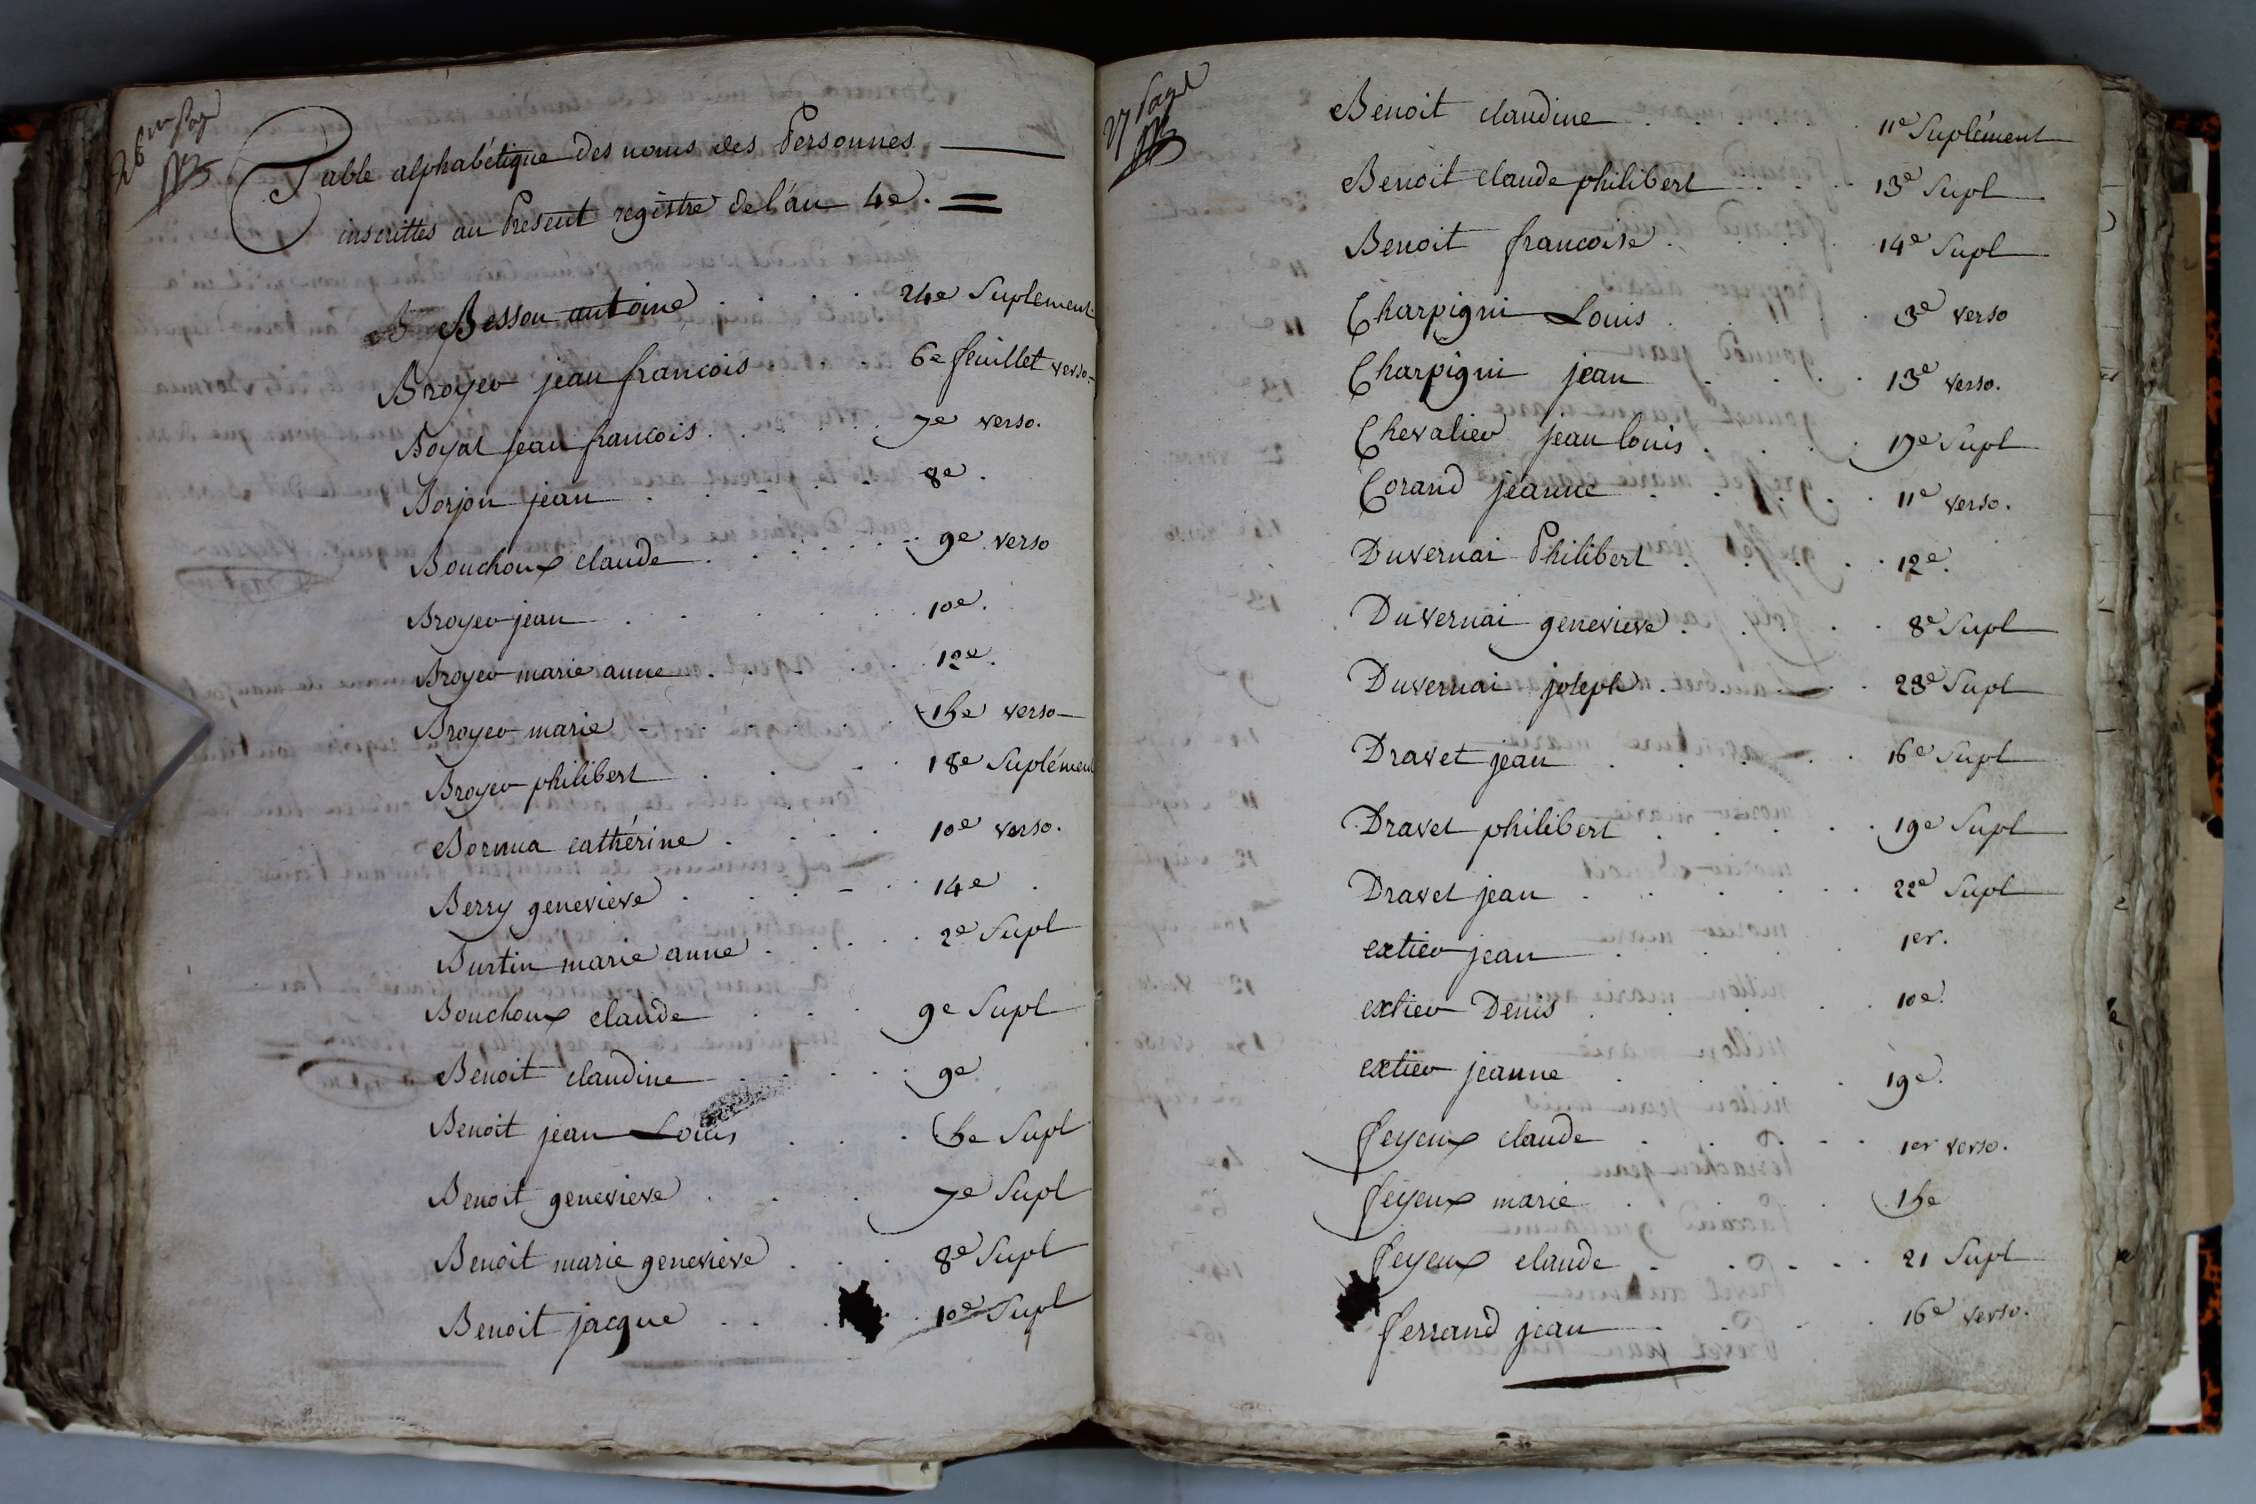 26me Page
Table alphabétique des noms des Personnes
inscrittes au Present registre de l'an 4e.
B Besson antoine . . . 24e Suplement
Broyer jean francois . . 6e feuillet verso
Boyat jean francois . . . 7e verso.
Borjon jean . . . . . 8e.
Bouchoux claude . . . . . 9e verso
Broyer jean . . . . . 10e.
Broyer marie anne . . . . . 12e.
Broyer marie . . . . . 15e verso
Broyer philibert . . . . 18e Suplément
Bornua cathérine . . . . 10e verso.
Berry genevieve . . . . 14e .
Burtin marie anne . . . . . 2e Supl
Bouchoux claude . . . 9e Supl
Benoit claudine . . . . . 9e
Benoit jean Louis . . . 5e Supl
Benoit genevieve . . . 7e Supl
Benoit marie genevieve . . . 8e Supl
Benoit jacque . . . . 10e Supl
27 Page
Benoit claudine . . . . . 11e Suplément
Benoit claude philibert . . . 13e Supl
Benoit francoise . . . . 14e Supl
Charpigni Louis . . . . 3e verso
Charpigni jean . . . . 13e verso.
Chevalier jean louis . . . . 17e Supl
Corand jeanne . . . . . 11e verso.
Duvernai Philibert . . . . . 12e.
Duvernai genevieve . . . . . 8e Supl
Duvernai joseph . . . . 23e Supl
Dravet jean . . . . . 16e Supl
Dravet philibert . . . . . 19e Supl
Dravet jean . . . . . 22e Supl
extier jean . . . . . 1er.
extier Denis . . . . . 10e.
extier jeanne . . . . 19e.
feyeux claude . . . . . 1er verso.
feyeux marie . . . . 15e
feyeux claude . . . . . 21 Supl
ferrand jean . . . . 16e verso.